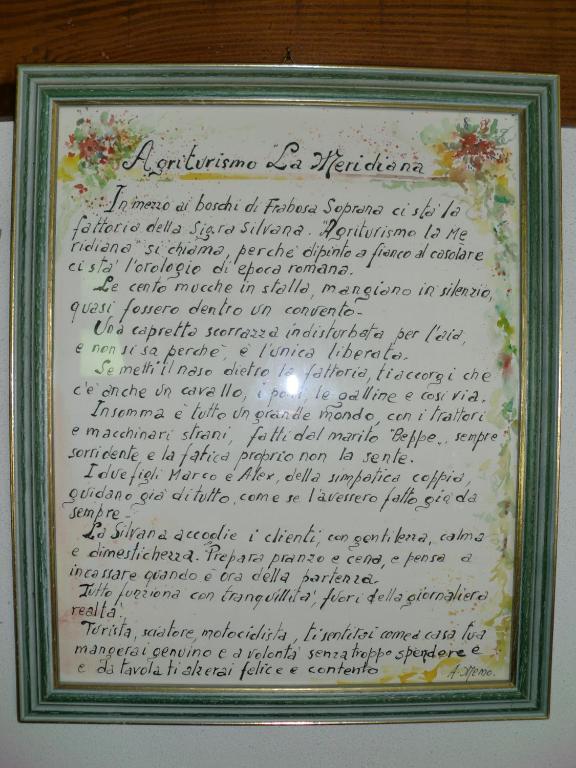 Agriturismo "La Meridiana
In mezzo ai boschi di Frabosa Soprana ci sta' la
fattoria della Sig.ra Silvana. "Agriturismo la Me
ridiana" si chiama, perché dipinto a fianco al casolare
ci sta' l'orologio di epoca romana.
Le cento mucche in stalla, mangiano in silenzio,
quasi fossero dentro un convento.
Una capretta scorrazza indisturbata per l'aia,
e non si sa perché, è l'unica liberata.
Se metti il naso dietro la fattoria, ti accorgi che
c'è anche un cavallo, i poni, le galline e così via.
Insomma è tutto un grande mondo, con i trattori
e macchinari strani, fatti dal marito "Beppe", sempre
sorridente e la fatica proprio non la sente.
I due figli Marco e Alex, della simpatica coppia,
guidano già di tutto, come se l'avessero fatto già da
sempre -
La Silvana accoglie i clienti, con gentilezza, calma
e dimestichezza. Prepara pranzo e cena, e pensa a
incassare quando è ora della partenza.
Tutto funziona con tranquillita', fuori della giornaliera
realta'.
Turista, sciatore, motociclista, ti sentirai come a casa tua
mangerai genuino e a volonta' senza troppo spendere e
e da tavola ti alzerai felice e contento
A. Memo.